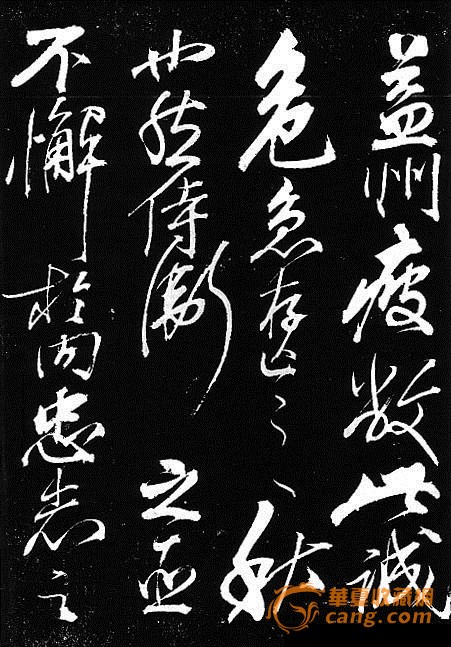 益州疲敝此誠
危急存亡之秋
也然侍衛之臣
不懈於内忠志之
華夏收藏網
cang.com